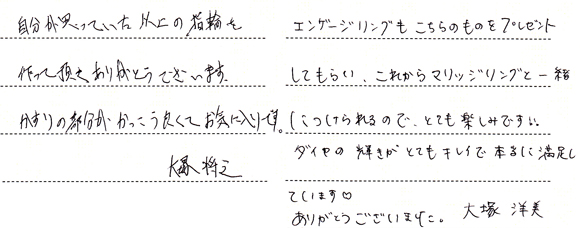 自分が思っていた以上の指輪を
作って頂き、ありがとうございます。
かすりの部分が、かっこう良くてお気に入りです。
大塚 将之
エンゲージリングもこちらのものをプレゼント
してもらい、これからマリッジリングと一緒
につけられるので、とても楽しみです!!
ダイヤの輝きがとてもキレイで本当に満足し
ています♡
ありがとうございました。 大塚 洋美